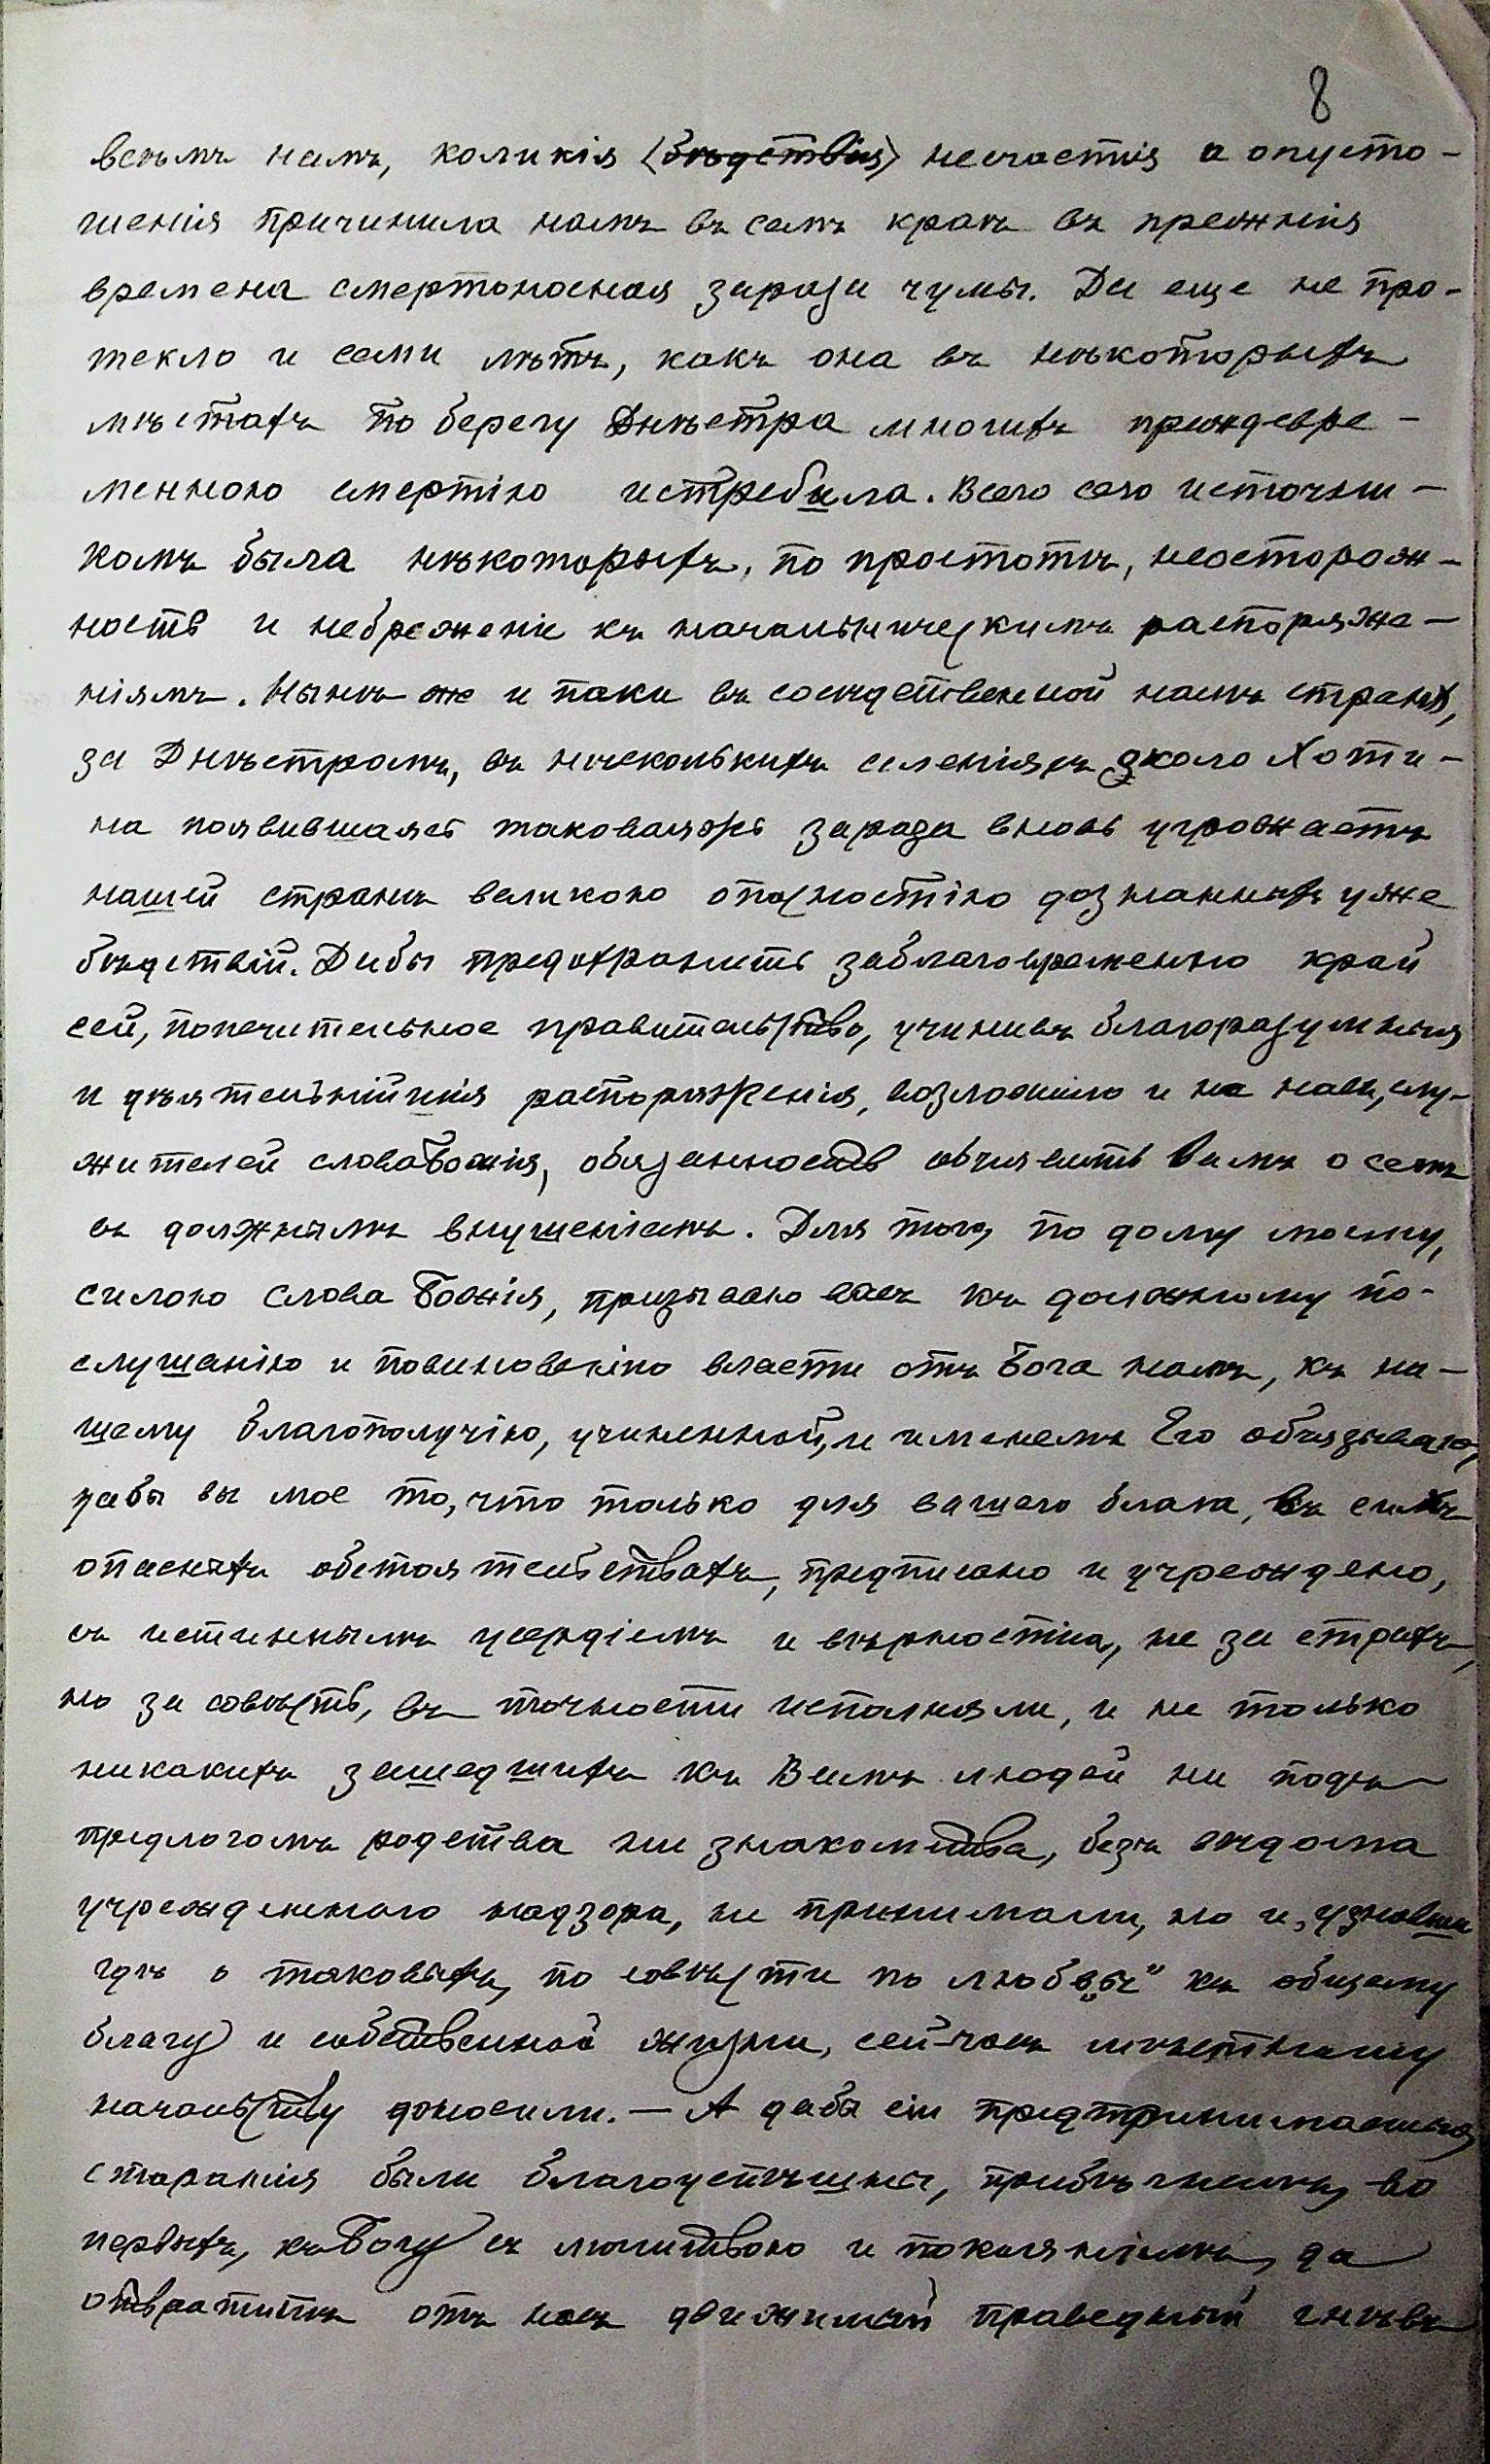 8
всѣмъ намъ, коликія (бѣдствія) несчастія и опусто-
шенія причинила намъ въ семъ краѣ въ прежнія
времена смертоносная зараза чумы. Да еще не про-
текло и семи лѣтъ, какъ она въ нѣкоторыхъ
мѣстахъ по берегу Днѣстра многихъ преждевре-
менною смертію истребила. Всего сего источни-
комъ была нѣкоторыхъ, по простотѣ, неосторож-
ность и небреженіе къ начальническимъ распоряже-
ніямъ. Нынѣ же и паки въ сосѣдственной намъ странѣ,
за Днѣстромъ, въ нѣсколькихъ селеніяхъ около Хоти-
на появившаяся таковаяжъ зараза вновь угрожаетъ
нашей странѣ великою опасностію дознанныхъ уже
бѣдствій. Дабы предохранить заблаговременно край
сей, попечительное правительство, учинивъ благоразумныя
и дѣятельнѣйшія распоряженія, возложило и на насъ, слу-
жителей слова Божія, обязанность объявить Вамъ о семъ
съ должнымъ внушеніемъ. Для того, по долгу моему,
силою Слова Божія, призываю васъ къ должному по-
слушанію и повиновенію власти отъ Бога намъ, къ на-
шему благополучію, учиненной, и именемъ Его обязываю,
дабы вы все то, что только для вашего блага, въ сихъ
опасныхъ обстоятельствахъ, предписано и учреждено,
съ истиннымъ усердіемъ и вѣрностію, не за страхъ,
но за совѣсть, въ точности исполняли, и не только
никакихъ зашедшихъ къ Вамъ людей ни подъ
предлогомъ родства ни знакомства, безъ вѣдома
учрежденнаго надзора, не принимали, но и, узнавши
гдѣ о таковыхъ, по совѣсти по любвѣ" къ общему
благу и собственной жизни, сей-часъ мѣстному
начальству доносили. — А дабы сіи предпринимаемыя
старанія были благоуспѣшны, прибѣгнемъ, во
первыхъ, къ Богу съ молитвою и покаяніемъ, да
отвратитъ отъ насъ движимый праведный гнѣвъ